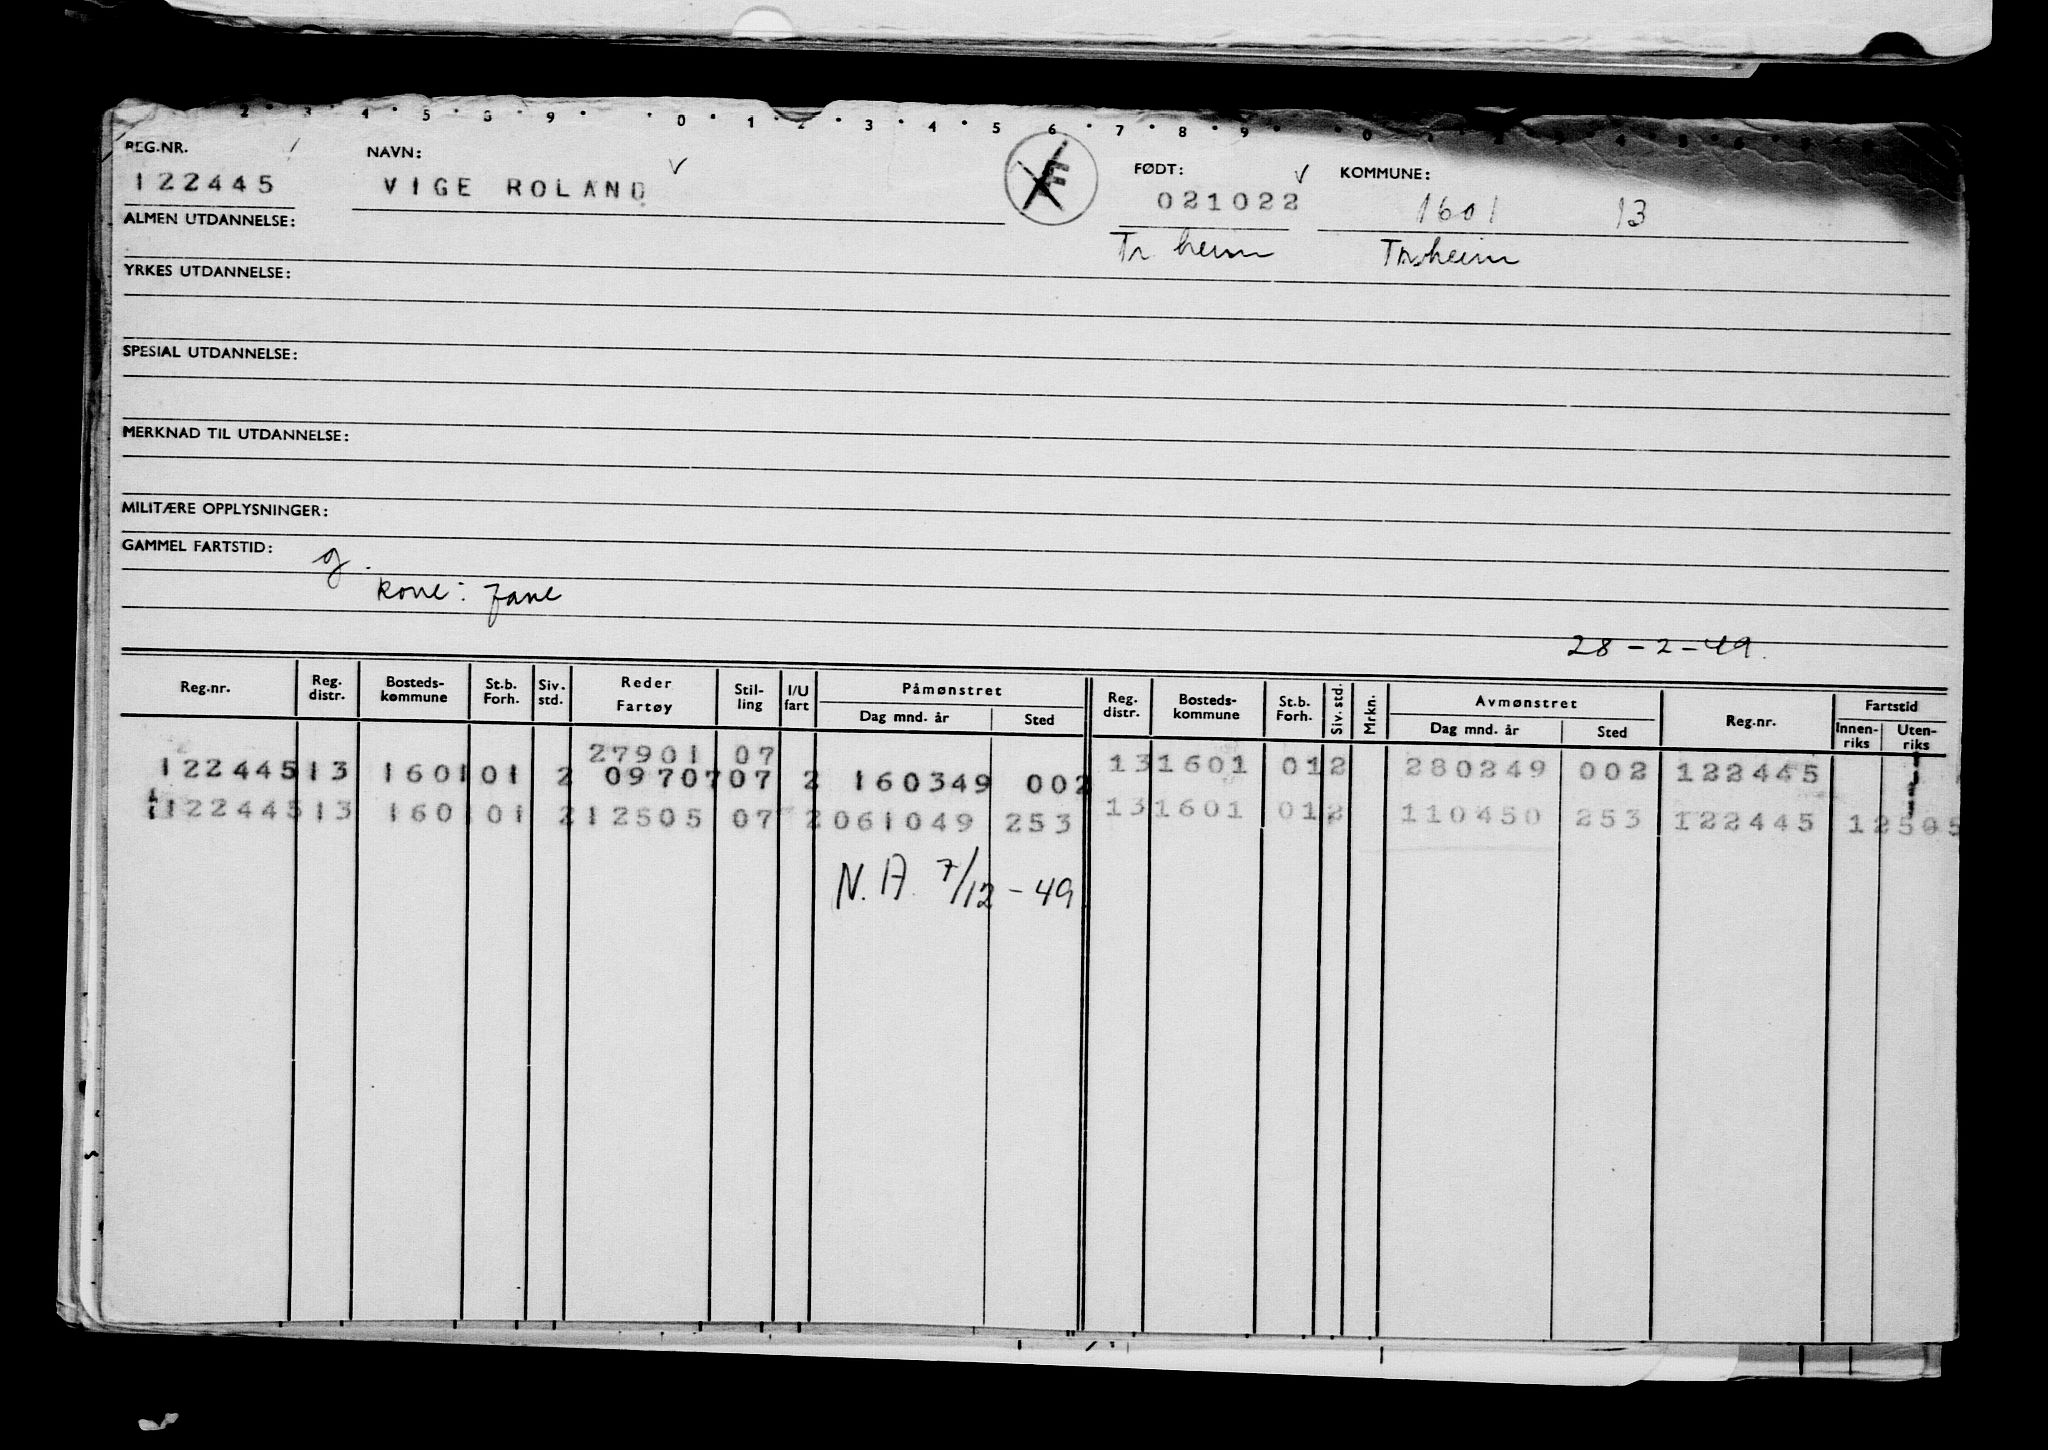 2 · 3 · 4 · 5 · 6 · 9 · · 0 · 1 · 2 · 3 · 4 · 5 6 · 7 · 8 · 9 · 0
REG.NR. NAVN: FØDT: KOMMUNE:
122445 VIGE ROLAND 021022 1601 13
ALMEN UTDANNELSE: Tr heim Trheim
YRKES UTDANNELSE:
SPESIAL UTDANNELSE:
MERKNAD TIL UTDANNELSE:
MILITÆRE OPPLYSNINGER:
GAMMEL FARTSTID: g.
kone: Jane
28-2-49.
Reg.nr. Reg. distr. Bosteds-kommune St.b. Forh. Siv. std. Reder Fartøy Stil-ling I/U fart Påmønstret Dag mnd. år Sted Reg. distr. Bosteds-kommune St.b. Forh. Siv. std. Mrkn. Avmønstret Dag mnd. år Sted Reg.nr. Fartstid Innen-riks Uten-riks
27901 07 13 1601 01 2 280249 002 122445
122445 13 1601 01 2 09707 07 2 160349 002
122445 13 1601 01 2 12505 07 2 061049 253 13 1601 01 2 110450 253 122445 12505
N.A. 7/12-49